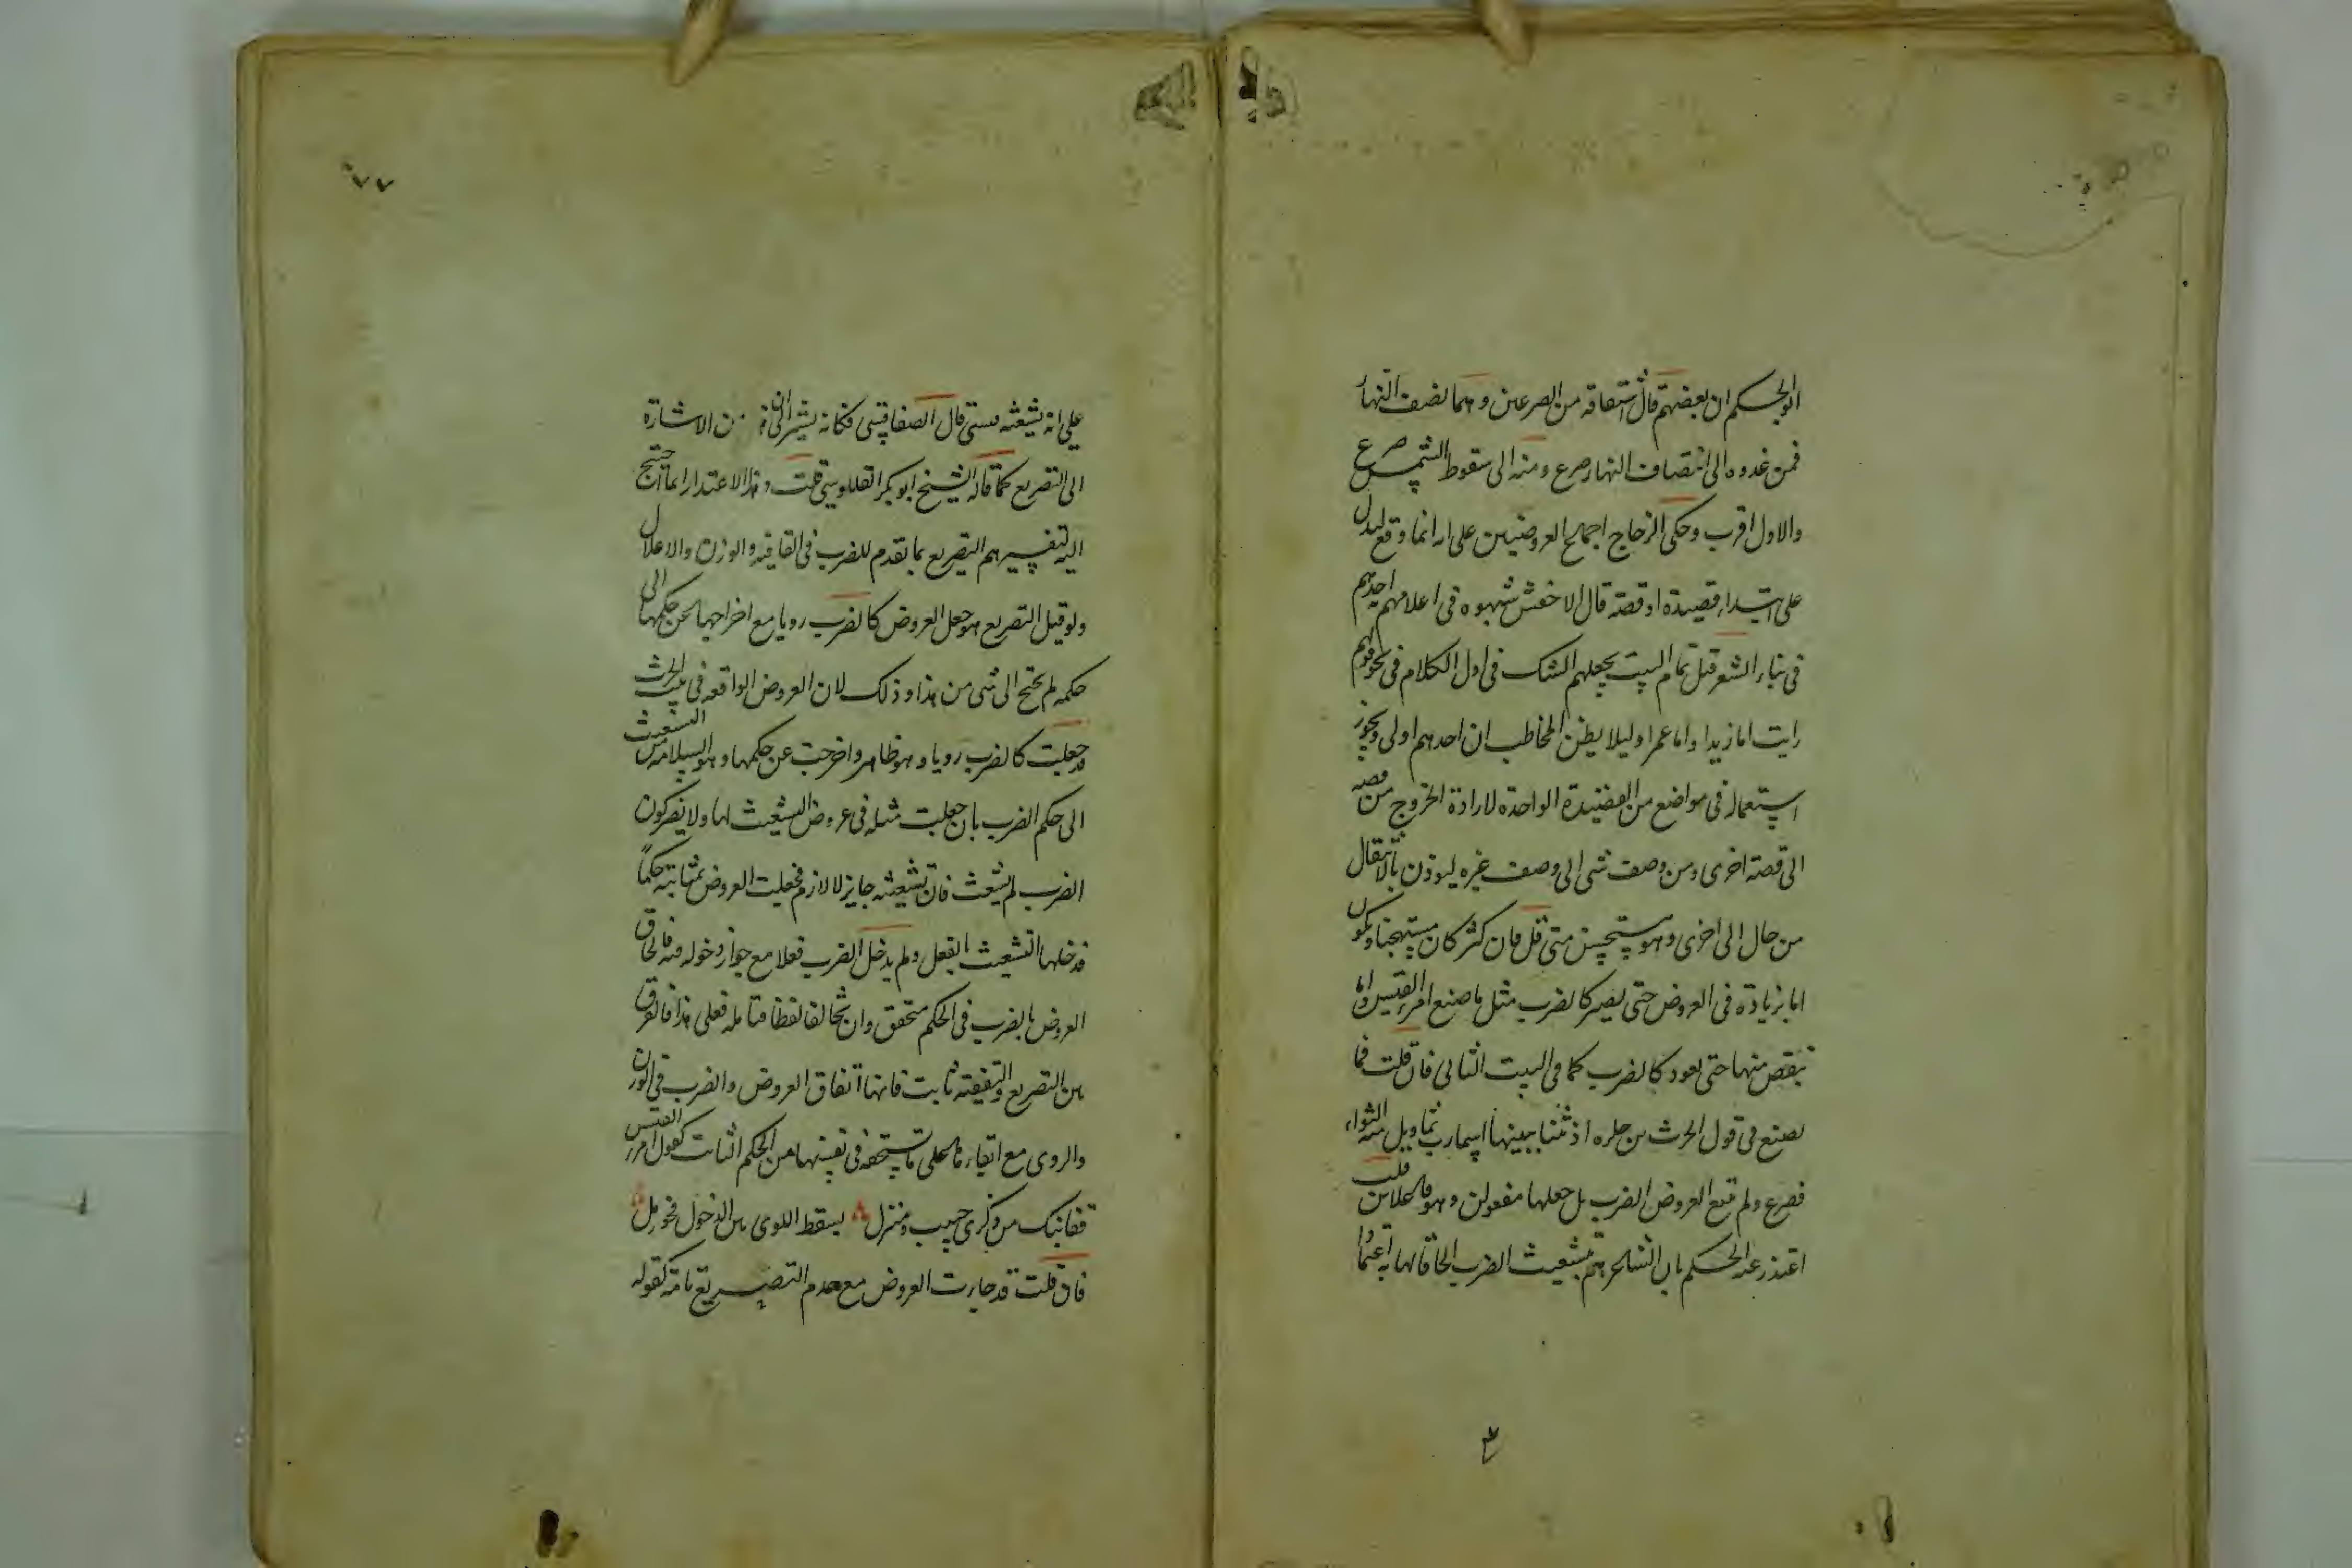 ابو الحكم ان بعضهم قال اشتقاقه من الصرعين وهما نصف النهار
فمن غدوه الى انتصاف النهار صرع ومنه الى سقوط الشمس صرع
والاول اقرب وحكى الزجاج اجماع العروضيين على انه انما وقع ليدل
على ابتداء قصيدة او قصة قال الاخفش شبهوه فى اعلامهم احدهم
فى بناء الشعر قبل تمام البيت بجعلهم الشك فى اول الكلام فى نحو قولهم
رايت اما زيدا واما عمرا وليلا يظن المخاطب ان احدهم اولى ويجوز
استعماله فى مواضع من القصيدة الواحدة لارادة الخروج من قصه
الى قصة اخرى ومن وصف شى الى وصف غيره ليوذن بالانتقال
من حال الى اخرى وهو مستحسن متى قل فان كثر كان مستهجنا ويكون
اما بزيادة فى العروض حتى يصير كالضرب مثل ما صنع امرء القيس واما
بنقص منها حتى تعود كالضرب كما فى البيت الثانى فان قلت فما
تصنع فى قول الحرث بن حلزه اذنتنا ببينها اسماء رب ثاو يمل منه الثواء
فصرع ولم تتبع العروض الضرب بل جعلها مفعولن وهو فاعلاتن قلت
اعتذر عنه الحكم بان الشاعر هم بتشعيث الضرب الحاقا لها به اعتمادا
٧٧
على انه يشعثه فنسى قال الصفاقسى فكانه يشير الى ان الاشارة
الى التصريع كما قاله الشيخ ابو بكر القللوسى قلت وهذا الاعتذار انما احتيج
اليه لتفسيرهم التصريع بما تقدم للضرب فى القافيه والوزن والاعلال
ولو قيل التصريع هو جعل العروض كالضرب رويا مع اخراجها عن حكمها الى
حكمه لم يحتج الى شى من هذا وذلك لان العروض الواقعه فى بيت الحرث
قد جعلت كالضرب رويا وهو ظاهر واخرجت عن حكمها وهو السلامة من التشعيث
الى حكم الضرب بان جعلت مثله فى عروض التشعيث لها ولا يضر كون
الضرب لم يشعث فان تشعيثه جايز لا لازم فجعلت العروض بمثابته حكما
فدخلها التشعيث بالفعل ولم يدخل الضرب فعلا مع جواز دخوله فيه فالحاق
العروض بالضرب فى الحكم متحقق وان تخالفا لفظا فتامله فعلى هذا فالفرق
بين التصريع والتقفيه ثابت فانها اتفاق العروض والضرب فى الوزن
والروى مع ابقاء على ما تستحقه فى نفسها من الحكم الثابت كقول امرء القيس
قفا نبك من ذكرى حبيب ومنزل بسقط اللوى بين الدخول فحومل
فان قلت قد جاءت العروض مع عدم التصريع تامة كقوله